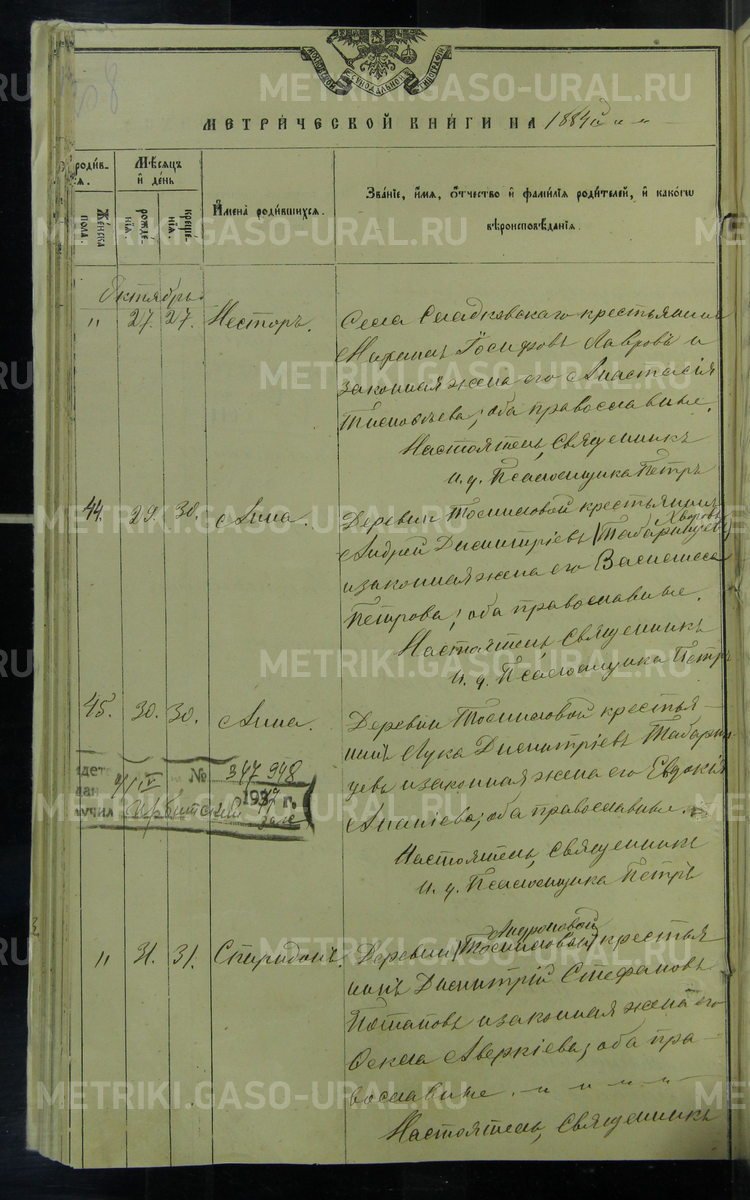 МЕТРИЧЕСКОЙ КНИГИ НА 1884й
родив-
Мѣсяцъ и день
Имена родившихся.
Званіе, имя, отчество и фамилія родителей, и какого
вѣроисповѣданія.
Женска пола.
рожде-нія
креще-нія.
Октябрь
" 27. 27. Несторъ. Села Сладковскаго крестьянинъ
Іосифовъ Лавровъ и
законная жена его Анастасія
оба православные.
Настоятель, Священникъ
и. д. Псаломщика Петръ
44. 29. 30. Анна. Деревни Томиловой крестьянинъ
Андрей Димитріевъ (Табаринцевъ)
и законная жена его Василиса
Петрова; оба православные.
Настоятель, Священникъ
и. д. Псаломщика Петръ
45. 30. 30. Анна. Деревни Томиловой крестья-
нинъ Лука Димитріевъ Табарин-
цевъ и законная жена его Евдокія
Ананіева; оба православные.
№ 347948
193 г.
Ирбитский
Настоятель, Священникъ
и. д. Псаломщика Петръ
Андроновой
" 31. 31. Спиридонъ. Деревни (Томиловой) крестья
нинъ Димитрій Стефановъ
Потаповъ и законная жена его
Аверкіева; оба пра-
вославные.
Настоятель, Священникъ
METRIKI.GASO-URAL.RU